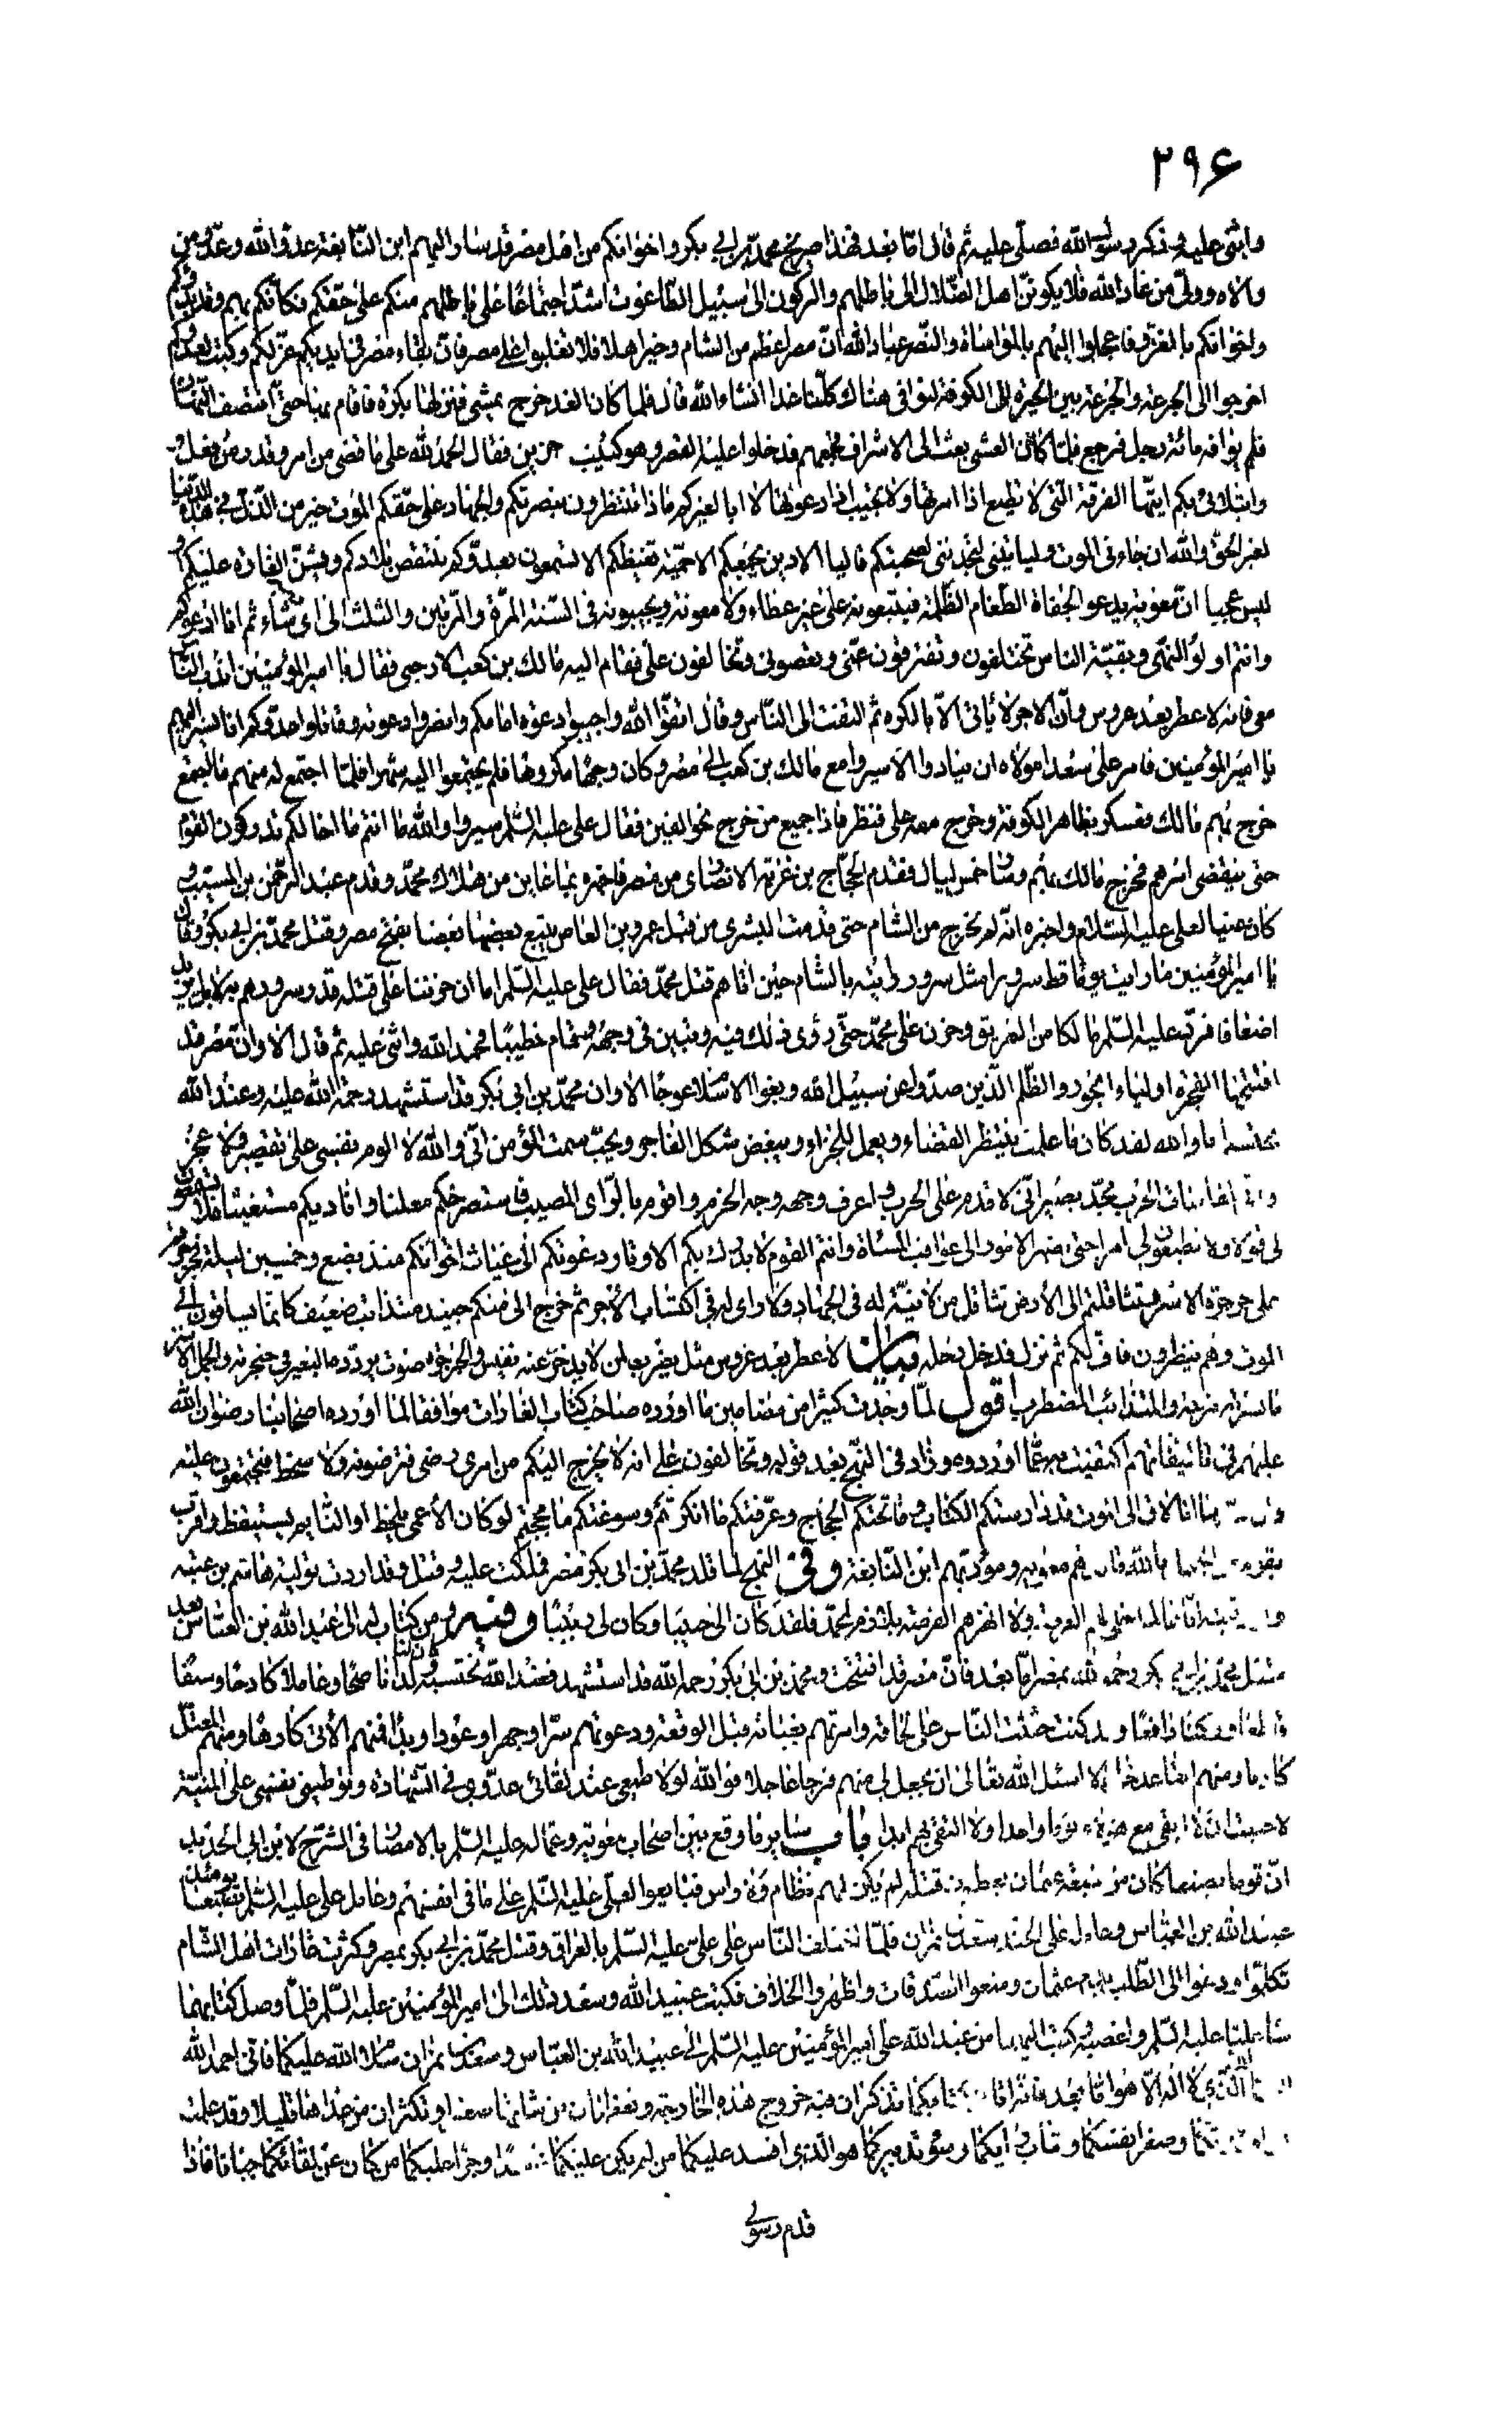 ۲۹۶
واثنى عليه وذكر رسول الله فصلّى عليه ثم قال امّا بعد فهذا صريخ محمّد بن ابى بكر واخوانكم من اهل مصر قد سار اليهم ابن النّابغة عدوّ الله وعدوّ من
والاه وولىّ من عاد الله فلا يكوننّ اهل الضّلال الى باطلهم والركون الى سبيل الطّاغوت اشدّ اجتماعا على باطلهم منكم على حقّكم فكانّكم بهم وقد بدؤكم
واخوانكم بالغزو فاعجلوا اليهم بالمواساة والنّصر عباد الله انّ مصر اعظم من الشام وخير اهلا فلا تغلبوا على مصر فانّ بقاء مصر فى ايديكم عزّ لكم وكبت لعدوّكم
اخرجوا الى الجرعة والجرعة بين الحيرة الى الكوفة لنتوافى هناك كلّنا غدا انشاء الله قال فلما كان الغد خرج يمشى فنزلها بكرة فاقام بها حتى انتصف النّهار
فلم يوافه مائة رجل فرجع فلمّا كان العشى بعث الى الاشراف فجمعهم فدخلوا عليه القصر وهو كئيب حزين فقال الحمد لله على ما قضى من امر وقدر من فعل و
وابتلانى بكم ايّتها الفرقة الّتى لا تطيع اذا امرتها ولا تجيب اذا دعوتها لا ابا لغيركم ماذا تنتظرون بنصرتكم والجهاد على حقّكم الموت خير من الذّل فى هذه الدّنيا
لغير الحقّ والله ان جاءنى الموت وليأتينى لتجدننى لصحبتكم قاليا الا دين يجمعكم الا حميّة تغيظكم الا تسمعون بعدوّكم ينتقص بلادكم ويشنّ الغارة عليكم او
ليس عجيبا انّ معوية يدعو الجفاة الطّغام الظّلمة فيتبعونه على غير عطاء ولا معونة ويجيبونه فى السّنة المرّة والمرّتين والثلث الى اىّ شاء ثم انا ادعوكم
وانتم اولو النّهى وبقيّة الناس تختلفون وتفترقون عنّى وتعصونى وتخالفون علىّ فقام اليه مالك بن كعب الارحبى فقال يا امير المؤمنين اندب النّاس
معى فانه لا عطر بعد عروس وانّ الاجر لا يأتى الّا بالكره ثم التفت الى النّاس وقال اتّقوا الله واجيبوا دعوة امامكم وانصروا دعوته وقاتلوا عدوّكم انا نسير اليهم
يا امير المؤمنين فامر علىّ سعدا مولاه ان ينادى الا سيروا مع مالك بن كعب الى مصر وكان وجها مكروها فلم يجتمعوا اليه شهرا فلمّا اجتمع له منهم ما اجتمع
خرج بهم مالك فعسكر بظاهر الكوفة وخرج معه على فنظر فاذا جميع من خرج نحو الفين فقال على عليه السّلم سيروا والله ما انتم ما اخالكم تدركون القوم
حتى ينقضى امرهم فخرج مالك بهم وسار خمس ليال فقدم الحجّاج بن غزية الانصارى من مصر فاخبره بما عاين من هلاك محمّد وقدم عبد الرّحمن بن المسيّب و
كان عينا لعلى عليه السّلام واخبره انّه لم يخرج من الشام حتى قدمت البشرى من قبل عمرو بن العاص يتبع بعضها بعضا بفتح مصر وقتل محمّد بن ابى بكر وقال
يا امير المؤمنين ما رايت يوما قط سرورا مثل سرور رايته بالشام حين اتاهم قتل محمّد فقال على عليه السّلم اما ان حزننا على قتله بقدر سرورهم به لا بل يزيد
اضعافا فردّ عليه السّلم مالكا من الطريق وحزن على محمّد حتّى رؤى ذلك فيه وتبيّن فى وجهه وقام خطيبا فحمد الله واثنى عليه ثم قال الا وانّ مصر قد
افتتحها الفجرة اولياء الجور والظّلم الّذين صدّوا عن سبيل الله وبغوا الاسلام عوجا الا وان محمّد بن ابى بكر قد استشهد رحمة الله عليه وعند الله
نحتسبه اما والله لقد كان ما علمت ينتظر القضاء ويعمل للجزاء ويبغض شكل الفاجر ويحبّ سمت المؤمن انّى والله لا الوم نفسى على تقصير ولا عجز
لمقاساة الحرب مجدّ بصير انّى لا قدم على الحرب واعرف وجه الحزم واقوم بالرّاى المصيب فاستصرخكم معلنا واناديكم مستغيثا فلا تسمعون
لى قولا ولا تطيعون لى امرا حتى تصير الامور الى عواقب المساءة وانتم القوم لا يدرك بكم الاوتار دعوتكم الى غياث اخوانكم منذ بضع وخمسين ليلة فجرجرتم
على جرجرة الاسر وتثاقلتم الى الأرض تثاقل من لا نيّة له فى الجهاد ولا راى له فى اكتساب الأجر ثم خرج الى منكم جنيد متذائب ضعيف كانما يساقون الى
الموت وهم ينظرون فافّ لكم ثم نزل فدخل رحله بيان لا عطر بعد عروس مثل يضرب لمن لا يدّخر عنه نفيس والجرجرة صوت يردده البعير فى حنجرته والجمل الأسرّ
المتذائب المضطرب اقول لمّا وجدت كثيرا من مضامين ما اورده صاحب كتاب الغارات موافقا لما اورده اصحابنا رضوان الله
عليهم فى تاليفاتهم اكتفيت به عمّا اوردوه وزاد فى النّهج بعد قوله وتخالفون علىّ انه لا يخرج اليكم من امرى رضى فترضونه ولا سخط فتجتمعون عليه
وانّ احبّ ما انا لاق الى الموت قد دارستكم الكتاب وفاتحتكم الحجاج وعرّفتكم ما انكرتم وسوّغتكم ما مججتم لو كان الأعمى يلحظ او النّائم يستيقظ واقرب
بقوم من الجهل بالله قائدهم معوية ومؤدّبهم ابن النّابغة وفى النهج لما قلد محمّد بن ابى بكر مصر فملكت عليه وقتل وقد اردت تولية هاشم بن عتبة
ولا انهزهم الفرصة بلا ذمّ لمحمّد فلقد كان الى حبيبا وكان لى ربيبا وفيه ومن كتاب له الى عبد الله بن العبّاس بعد
مقتل محمّد بن ابى بكر رحمه الله بمصر امّا بعد فانّ مصر قد افتتحت ومحمّد بن ابى بكر رحمه الله قد استشهد فعند الله نحتسبه ولدا ناصحا وعاملا كادحا وسيفا
قاطعا وركنا دافعا وقد كنت حثثت النّاس على لحاقه وامرتهم بغياثه قبل الوقعة ودعوتهم سرّا وجهرا وعودا وبدأ فمنهم الأتى كارها ومنهم المعتلّ
كاذبا ومنهم القاعد خاذلا اسئل الله تعالى ان يجعل لى منهم فرجا عاجلا فوالله لولا طمعى عند لقائى عدّوى فى الشّهادة وتوطينى نفسى على المنيّة
لاحببت ان لا ابقى مع هؤلاء يوما واحدا ولا التقى بهم ابدا باب ساير ما وقع بين اصحاب معوية وعمّاله عليه السّلم بالامصار فى الشرح لابن ابى الحديد
انّ قوما بصنعاء كان من شيعة عثمان يعظمون قتله لم يكن لهم نظام ولا راس فبايعوا لعلّى عليه السّلم على ما فى انفسهم وعامل على عليه السّلم يومئذ على صنعا
عبيد الله بن العبّاس وعامله على الجند سعيد بن نمران فلمّا اختلف النّاس على علىّ عليه السّلم بالعراق وقتل محمّد بن ابى بكر بمصر وكثرت غارات اهل الشّام
تكلّموا ودعوا الى الطّلب بدم عثمان ومنعوا الصّدقات واظهروا الخلاف فكتب عبيد الله وسعيد ذلك الى امير المؤمنين عليه السّلم فلمّا وصل كتابهما
ساء عليّا عليه السّلم واغضبه وكتب اليهما من عبد الله علىّ امير المؤمنين عليه السّلم الى عبيد الله بن العبّاس وسعيد بن نمران سلام الله عليكما فانّى احمد الله
الّذى لا اله الّا هو امّا بعد فانه اتانى كتابكما تذكران فيه خروج هذه الخارجة وتعظمان من شانها صغيرا وتكثران من عددها قليلا وقد علمت
وصغر انفسكما وشتات رايكما وسوء تدبيركما هو الّذى افسد عليكما من لم يكن عليكما فاسدا وجرّا عليكما من كان عن لقائكما جبانا فاذا
قدم رسولى